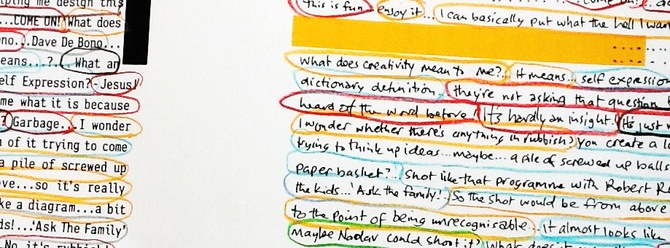 ping me design this
...COME ON! What does
no...Dave De Bono...
eans...?. What an
elf Expression? Jesus
me what it is because
? Garbage... I wonder
n of it trying to come
a pile of screwed up
ove...so it's really
ke a diagram...a bit
ds!...'Ask The Family'
No it's rubbish
this is fun enjoy it... I can basically put what the hell I want
What does creativity mean to me?.. It means... self expression
dictionary definition, they're not asking that question
heard of the word before It's hardly an insight! It's just w
I wonder whether there's anything in rubbish? you create a lo
trying to think up ideas... maybe... a pile of screwed up balls
paper basket? Shot like that programme with Robert R
the kids... 'Ask the family! So the shot would be from above
to the point of being unrecognisable. It almost looks like
Maybe Nadav could shoot it? What does